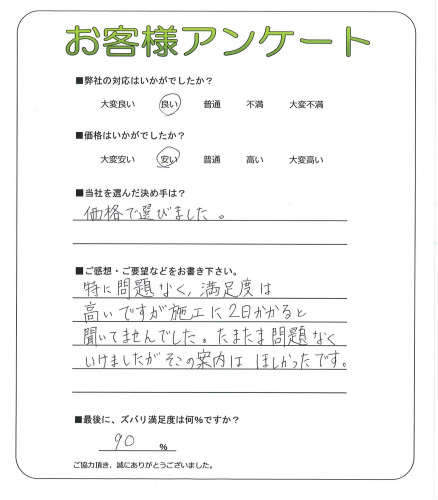 お客様アンケート
■弊社の対応はいかがでしたか？
大変良い 良い 普通 不満 大変不満
■価格はいかがでしたか？
大変安い 安い 普通 高い 大変高い
■当社を選んだ決め手は？
価格で選びました。
■ご感想・ご要望などをお書き下さい。
特に問題なく、満足度は
高いですが施工に2日かかると
聞いてませんでした。たまたま問題なく
いけましたがそこの案内は ほしかったです。
■最後に、ズバリ満足度は何%ですか？
90 %
ご協力頂き、誠にありがとうございました。